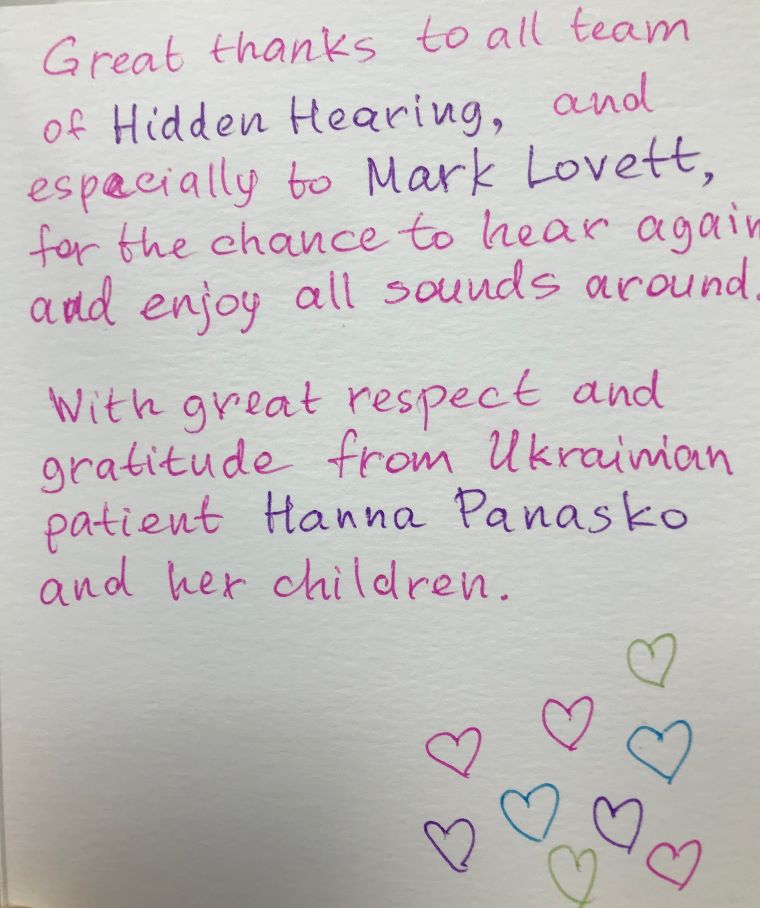 Great thanks to all team
of Hidden Hearing, and
especially to Mark Lovett,
for the chance to hear again
and enjoy all sounds around.
With great respect and
gratitude from Ukrainian
patient Hanna Panasko
and her children.